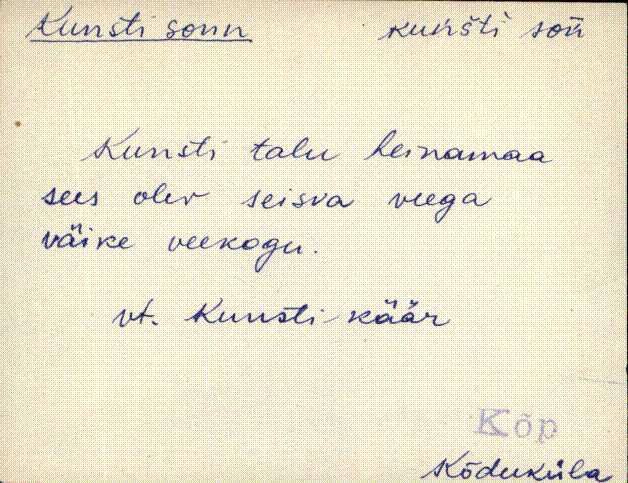 Kunsti sonn kuństi soǹ
Kunsti talu heinamaa
sees olev seisva veega
väike veekogu.
vt. Kunsti käär
Kõp
Kõduküla